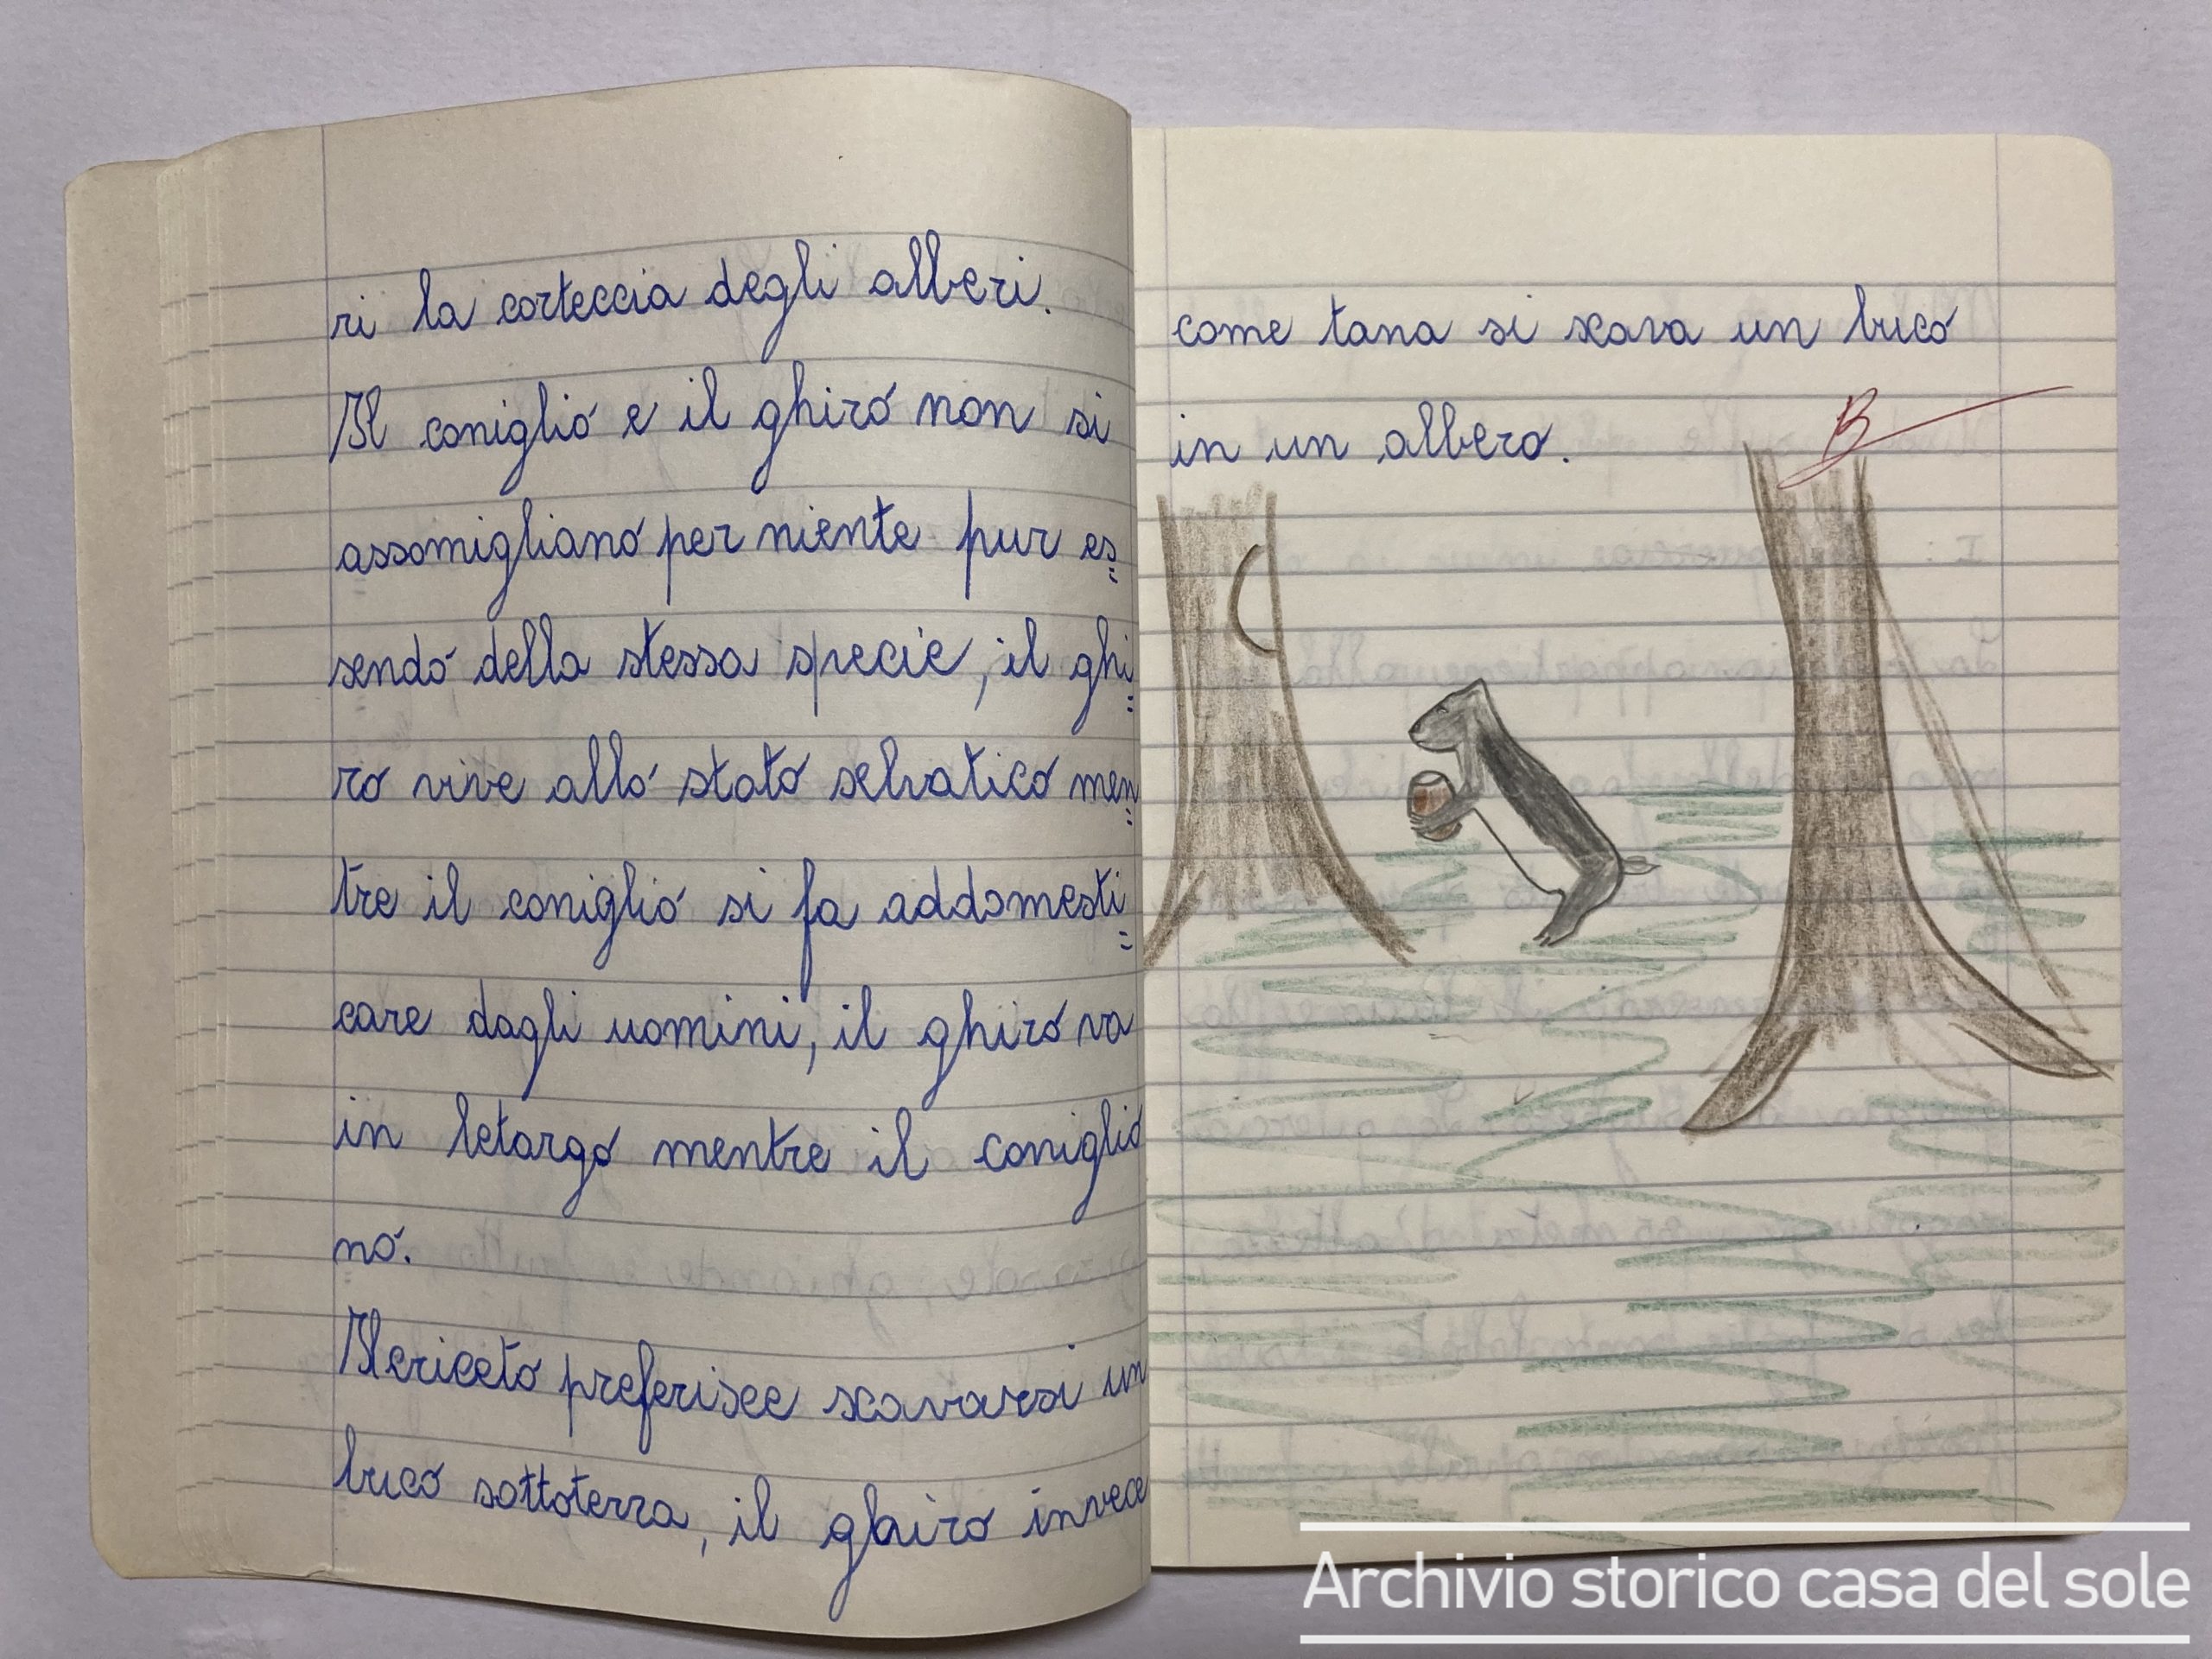 ri la corteccia degli alberi.
Il coniglio e il ghiro non si
assomigliano per niente pur es=
sendo della stessa specie, il ghi=
ro vive allo stato selvatico men=
tre il coniglio si fa addomesti=
care dagli uomini, il ghiro va
in letargo mentre il coniglio
no.
Il criceto preferisce scavarsi un
buco sottoterra, il ghiro invece
come tana si scava un buco
in un albero.
B
Archivio storico casa del sole